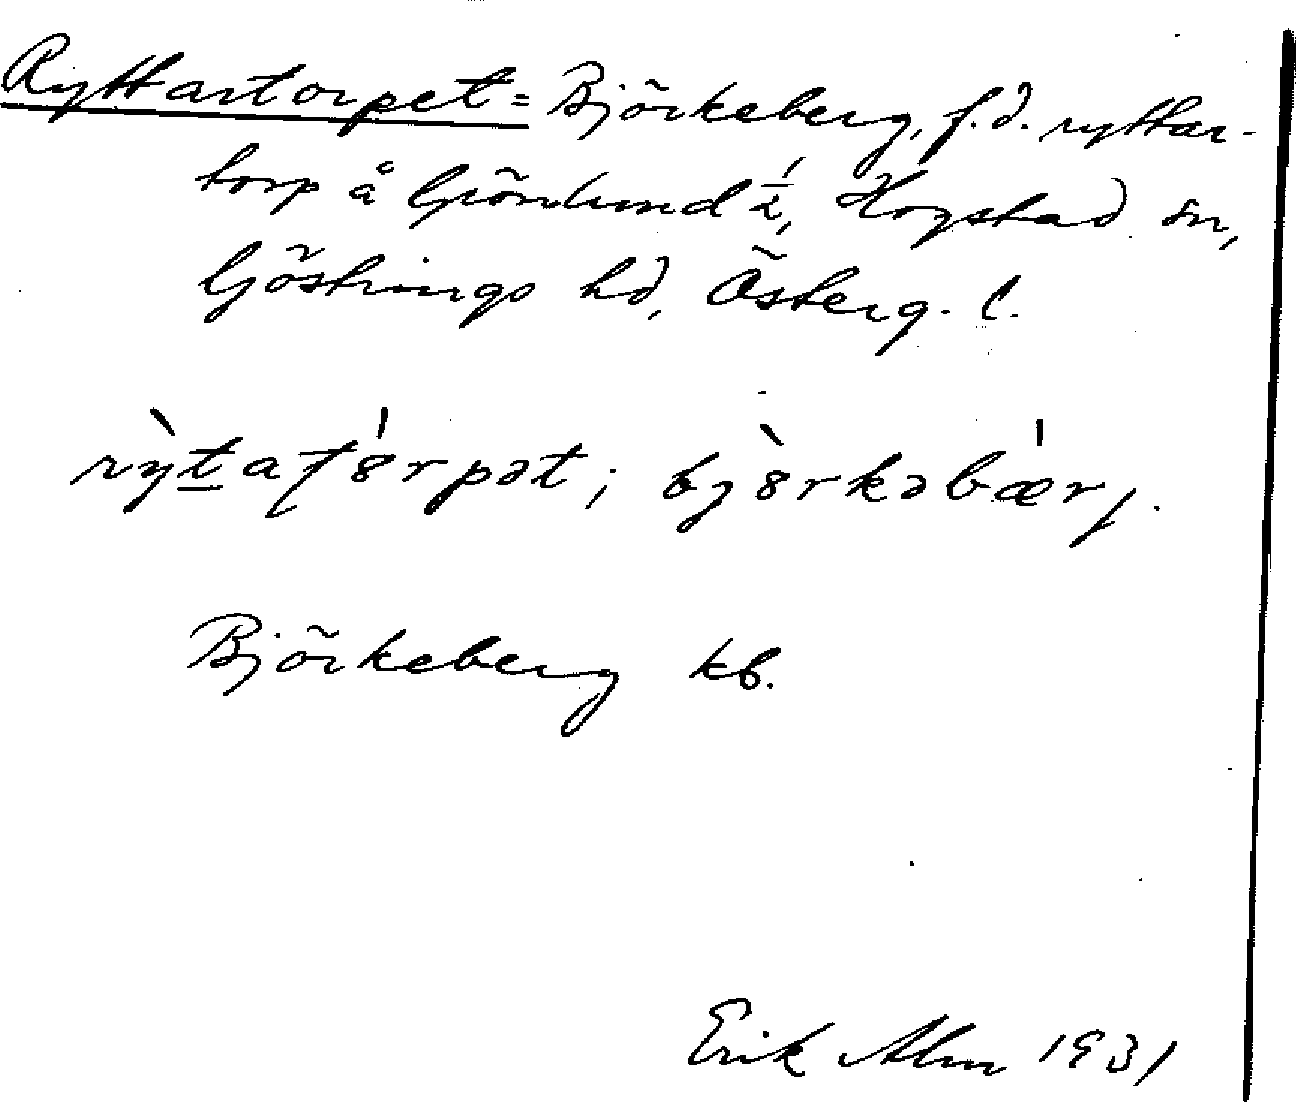 Ryttartorpet = Björkeberg, f.d. ryttar-
torp å Gjörlunda ½, Hogstad sn,
Göstrings hd, Österg. l.
rỳt̲atórpət; bjòrkəbærj.
Björkeberg kb.
Erik Alm 1931